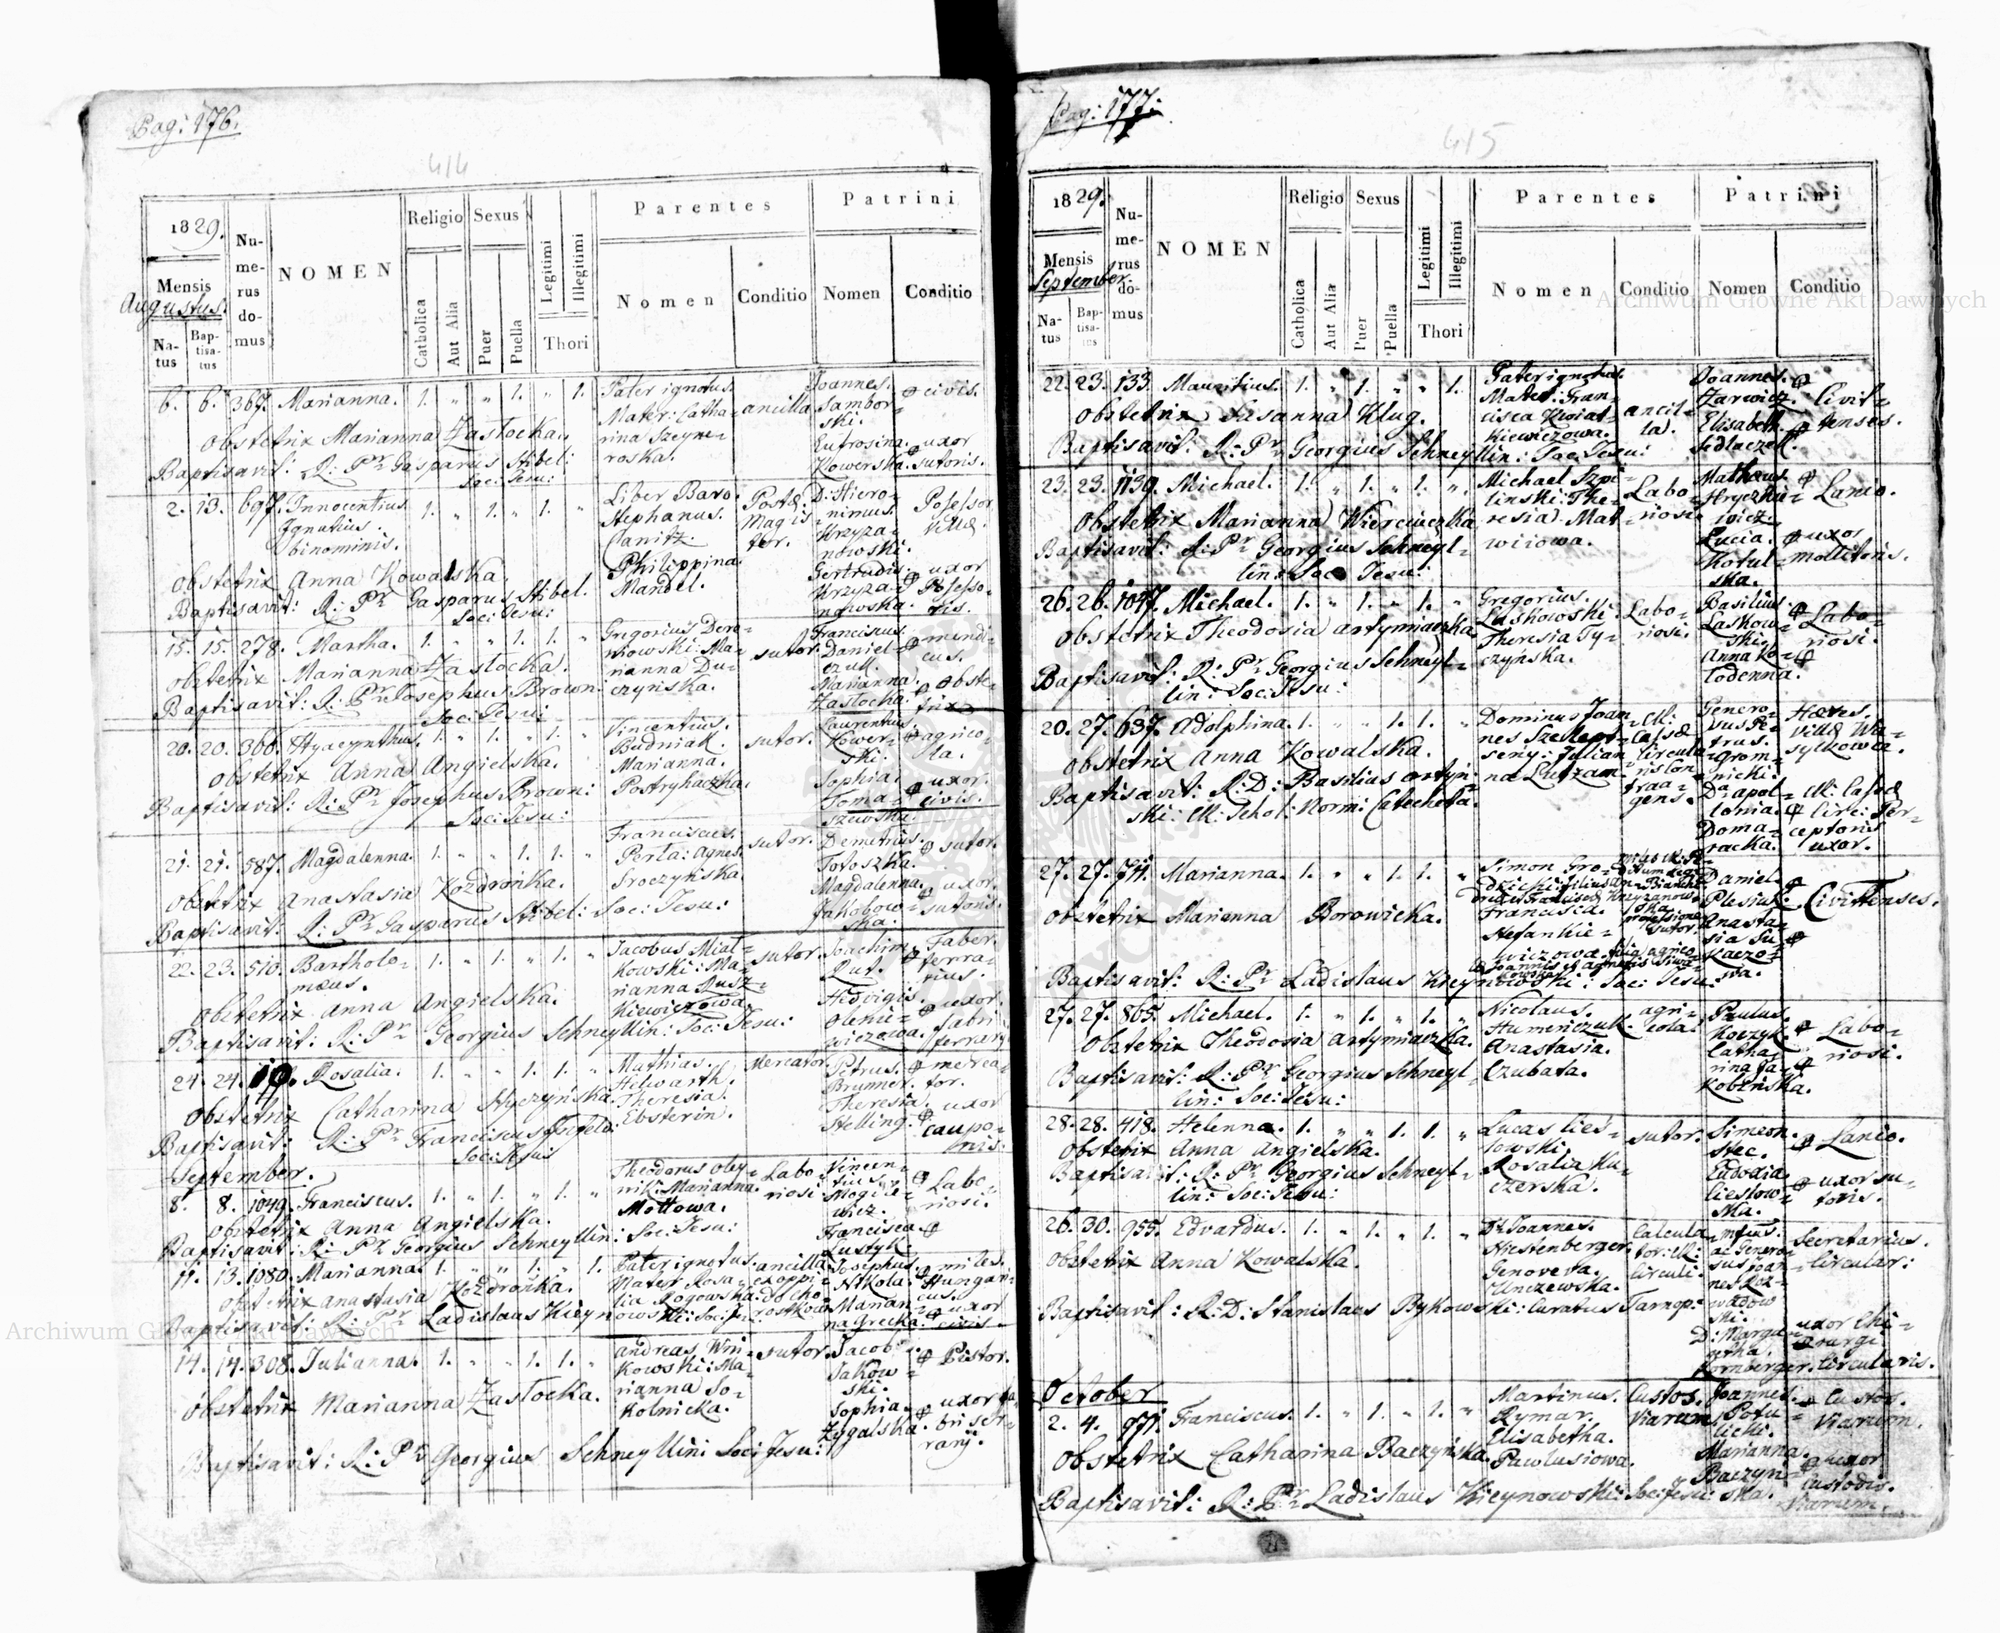 Pag: 176.
414
1829.
Mensis
Augustus.
Natus
Baptisatus
Numerus domus
NOMEN
Religio
Catholica
Aut Alia
Sexus
Puer
Puella
Legitimi
Illegitimi
Thori
Parentes
Nomen
Conditio
Patrini
Nomen
Conditio
6. 6. 367. Marianna. 1. " " 1. " 1. Pater ignotus. Mater: Catharina ancilla Joannes. Samborski. civis.
Eufrosina. Kowerska. uxor sutoris.
Obstetrix Marianna Zastocka.
Baptisavit: R: Pr Gasparus Stibel: Soc: Jesu:
2. 13. 697. Innocentius Ignatius. binominis. 1. " 1. " 1. " Liber Baro. Stephanus. Philippina. Mandel. Magister. D: Hieronimus. Krzyzanowski. Possessor
Gertrudis. Krzyzanowska. uxor Possessoris.
Obstetrix Anna Kowalska.
Baptisavit: R: Pr Gasparus Stibel. Soc: Jesu:
15. 15. 278. Martha. 1. " " 1. 1. " Gregorius sutor. Franciscus. Danielczuk. mendicus.
Marianna Duczyńska. Marianna. Zastocka. obstetrix
Obstetrix Marianna Zastocka.
Baptisavit: R: Pr Josephus Brown: Soc: Jesu:
20. 20. 366. Hyacynthus. 1. " 1. " 1. " Vincentius. Budniak. Marianna. Postryhaczka. sutor. Laurentius. Kowerski. agricola.
Sophia. Tomaszewska. uxor. civis.
Obstetrix Anna Angielska.
Baptisavit: R: Pr Josephus Brown: Soc: Jesu:
21. 21. 587. Magdalenna. 1. " " 1. 1. " Franciscus. Perła: Agnes. Sroczyńska. sutor. Demetrius. sutor.
Magdalenna. Jakobowska. uxor. sutoris.
Obstetrix Anastasia Kozdrońka.
Baptisavit: R: Pr Gasparus Stibel: Soc: Jesu:
22. 23. 510. Bartholomæus. 1. " 1. " 1. " Jacobus Miałkowski: Marianna Łuszkiewiczowa. sutor. Joachim. Rut. Faber. ferrarius.
Hedvigis. uxor.
Obstetrix Anna Angielska.
Baptisavit: R: Pr Georgius Schneyllin: Soc: Jesu:
24. 24. Rosalia. 1. " " 1. 1. " Mathias. Hilwarth. Theresia. Ebsterin. Mercator. Petrus. Brumer. mercator.
Theresia. Stelling. uxor cauponis.
Obstetrix Catharina Huczyńska.
Baptisavit: R: Pr Franciscus Soc: Jesu:
September.
8. 8. 1049. Franciscus. 1. " 1. " 1. " Theodorus Marianna. Mottowa. Laboriosi Vincentius. Laboriosi.
Francisca
Obstetrix Anna Angielska.
Baptisavit: R: Pr Georgius Schneyllin: Soc: Jesu:
11. 13. 1080. Marianna. 1. " " 1. " 1. Pater ignotus. Mater Rosalia Rogowska. ancilla Josephus. Nikola. miles. Hungaricus.
Marianna Grecka. uxor civis.
Obstetrix Anastasia Kozdrońka.
Baptisavit: R: Pr Ladislaus Kieynowski: Soc: Jesu:
14. 14. 308. Julianna. 1. " " 1. 1. " Andreas Marianna Sokolnicka. sutor. Jacob. Jakowski. Pistor.
Sophia. Zygalska. uxor
Obstetrix Marianna Zastocka.
Baptisavit: R: Pr Georgius Schneyllin: Soc: Jesu:
Pag: 177:
415
1829.
Mensis
September.
Natus
Baptisatus
Numerus domus
NOMEN
Religio
Catholica
Aut Alia
Sexus
Puer
Puella
Legitimi
Illegitimi
Thori
Parentes
Nomen
Conditio
Patrini
Nomen
Conditio
22. 23. 133. Mauritius. 1. " 1. " " 1. Pater ignotus. Mater: Francisca Kwiatkiewiczowa. ancilla. Joannes. Zarwicz. Elisabeth. Sedlaczek. Civittenses.
Obstetrix Susanna Klug.
Baptisavit: R: Pr Georgius Schneyllin: Soc: Jesu:
23. 23. 1139. Michael. 1. " 1. " 1. " Michael Szpilinski: Theresia Laboriosi Mathæus Hryczkiewicz. Lanio.
Lucia. Kotulska. uxor mollitoris.
Obstetrix Marianna Wierciuczka
Baptisavit: R: Pr Georgius Schneyllin: Soc: Jesu:
26. 26. 1047. Michael. 1. " 1. " 1. " Gregorius. Laskowski. Theresia Tyczyńska. Laboriosi. Basilius. Laskowski. Anna Kolodenna. Laboriosi.
Obstetrix Theodosia Artymiaczka
Baptisavit: R: Pr Georgius Schneyllin: Soc: Jesu:
20. 27. 637. Adolphina. 1. " " 1. 1. " Dominus Joannes Julianna Lutzam C.R: Cassæ Circularis Generosus Petrus. Gromnicki. Hæres. villæ Wasylkowca.
Da Apollonia. Domaracka. C.R: Cassæ Circ: Perceptoris uxor.
Obstetrix Anna Kowalska.
Baptisavit: R: D: Basilius Artyński: C.R: Schol: Norm: Catecheta.
27. 27. 711. Marianna. 1. " " 1. 1. " Simon Francisca. Stefankiewiczowa. Daniel. Plesiuk. Anastasia Civittenses.
Obstetrix Marianna Borowicka.
Baptisavit: R: Pr Ladislaus Kieynowski: Soc: Jesu:
27. 27. 865. Michael. 1. " 1. " 1. " Nicolaus. Humeńczuk. Anastasia. Czubata. agricola. Paulus. Koczyk. Catharina Jakobińska. Laboriosi.
Obstetrix Theodosia Artymiaczka.
Baptisavit: R: Pr Georgius Schneyllin: Soc: Jesu:
28. 28. 418. Helenna. 1. " " 1. 1. " Lucas Cieslowski. Rosalia Kuczerska. sutor. Simeon. Stec. Lanio.
Eudodia. Cieslowska. uxor sutoris.
Obstetrix Anna Angielska.
Baptisavit: R: Pr Georgius Schneyllin: Soc: Jesu:
26. 30. 955. Edvardus. 1. " 1. " 1. " Ds Joannes. Hiestenberger. Genoveva. Calculator: C.R: Circuli. Generosus Joannes Secretarius. Circular:
D: Margaretha. Kornberger. uxor Chirurgi Circularis.
Obstetrix Anna Kowalska.
Baptisavit: R: D: Stanislaus Bykowski: Curatus Tarnop:
October
2. 4. 971. Franciscus. 1. " 1. " 1. " Martinus. Rymar. Elisabetha. Pawlusiowa. Custos. viarum. Joannes. Potulicki. Custos. viarum.
Marianna. Baczyńska. uxor Custodis. viarum.
Obstetrix Catharina Baczyńska.
Baptisavit: R: Pr Ladislaus Kieynowski: Soc: Jesu:
Archiwum Główne Akt Dawnych
Archiwum Główne Akt Dawnych